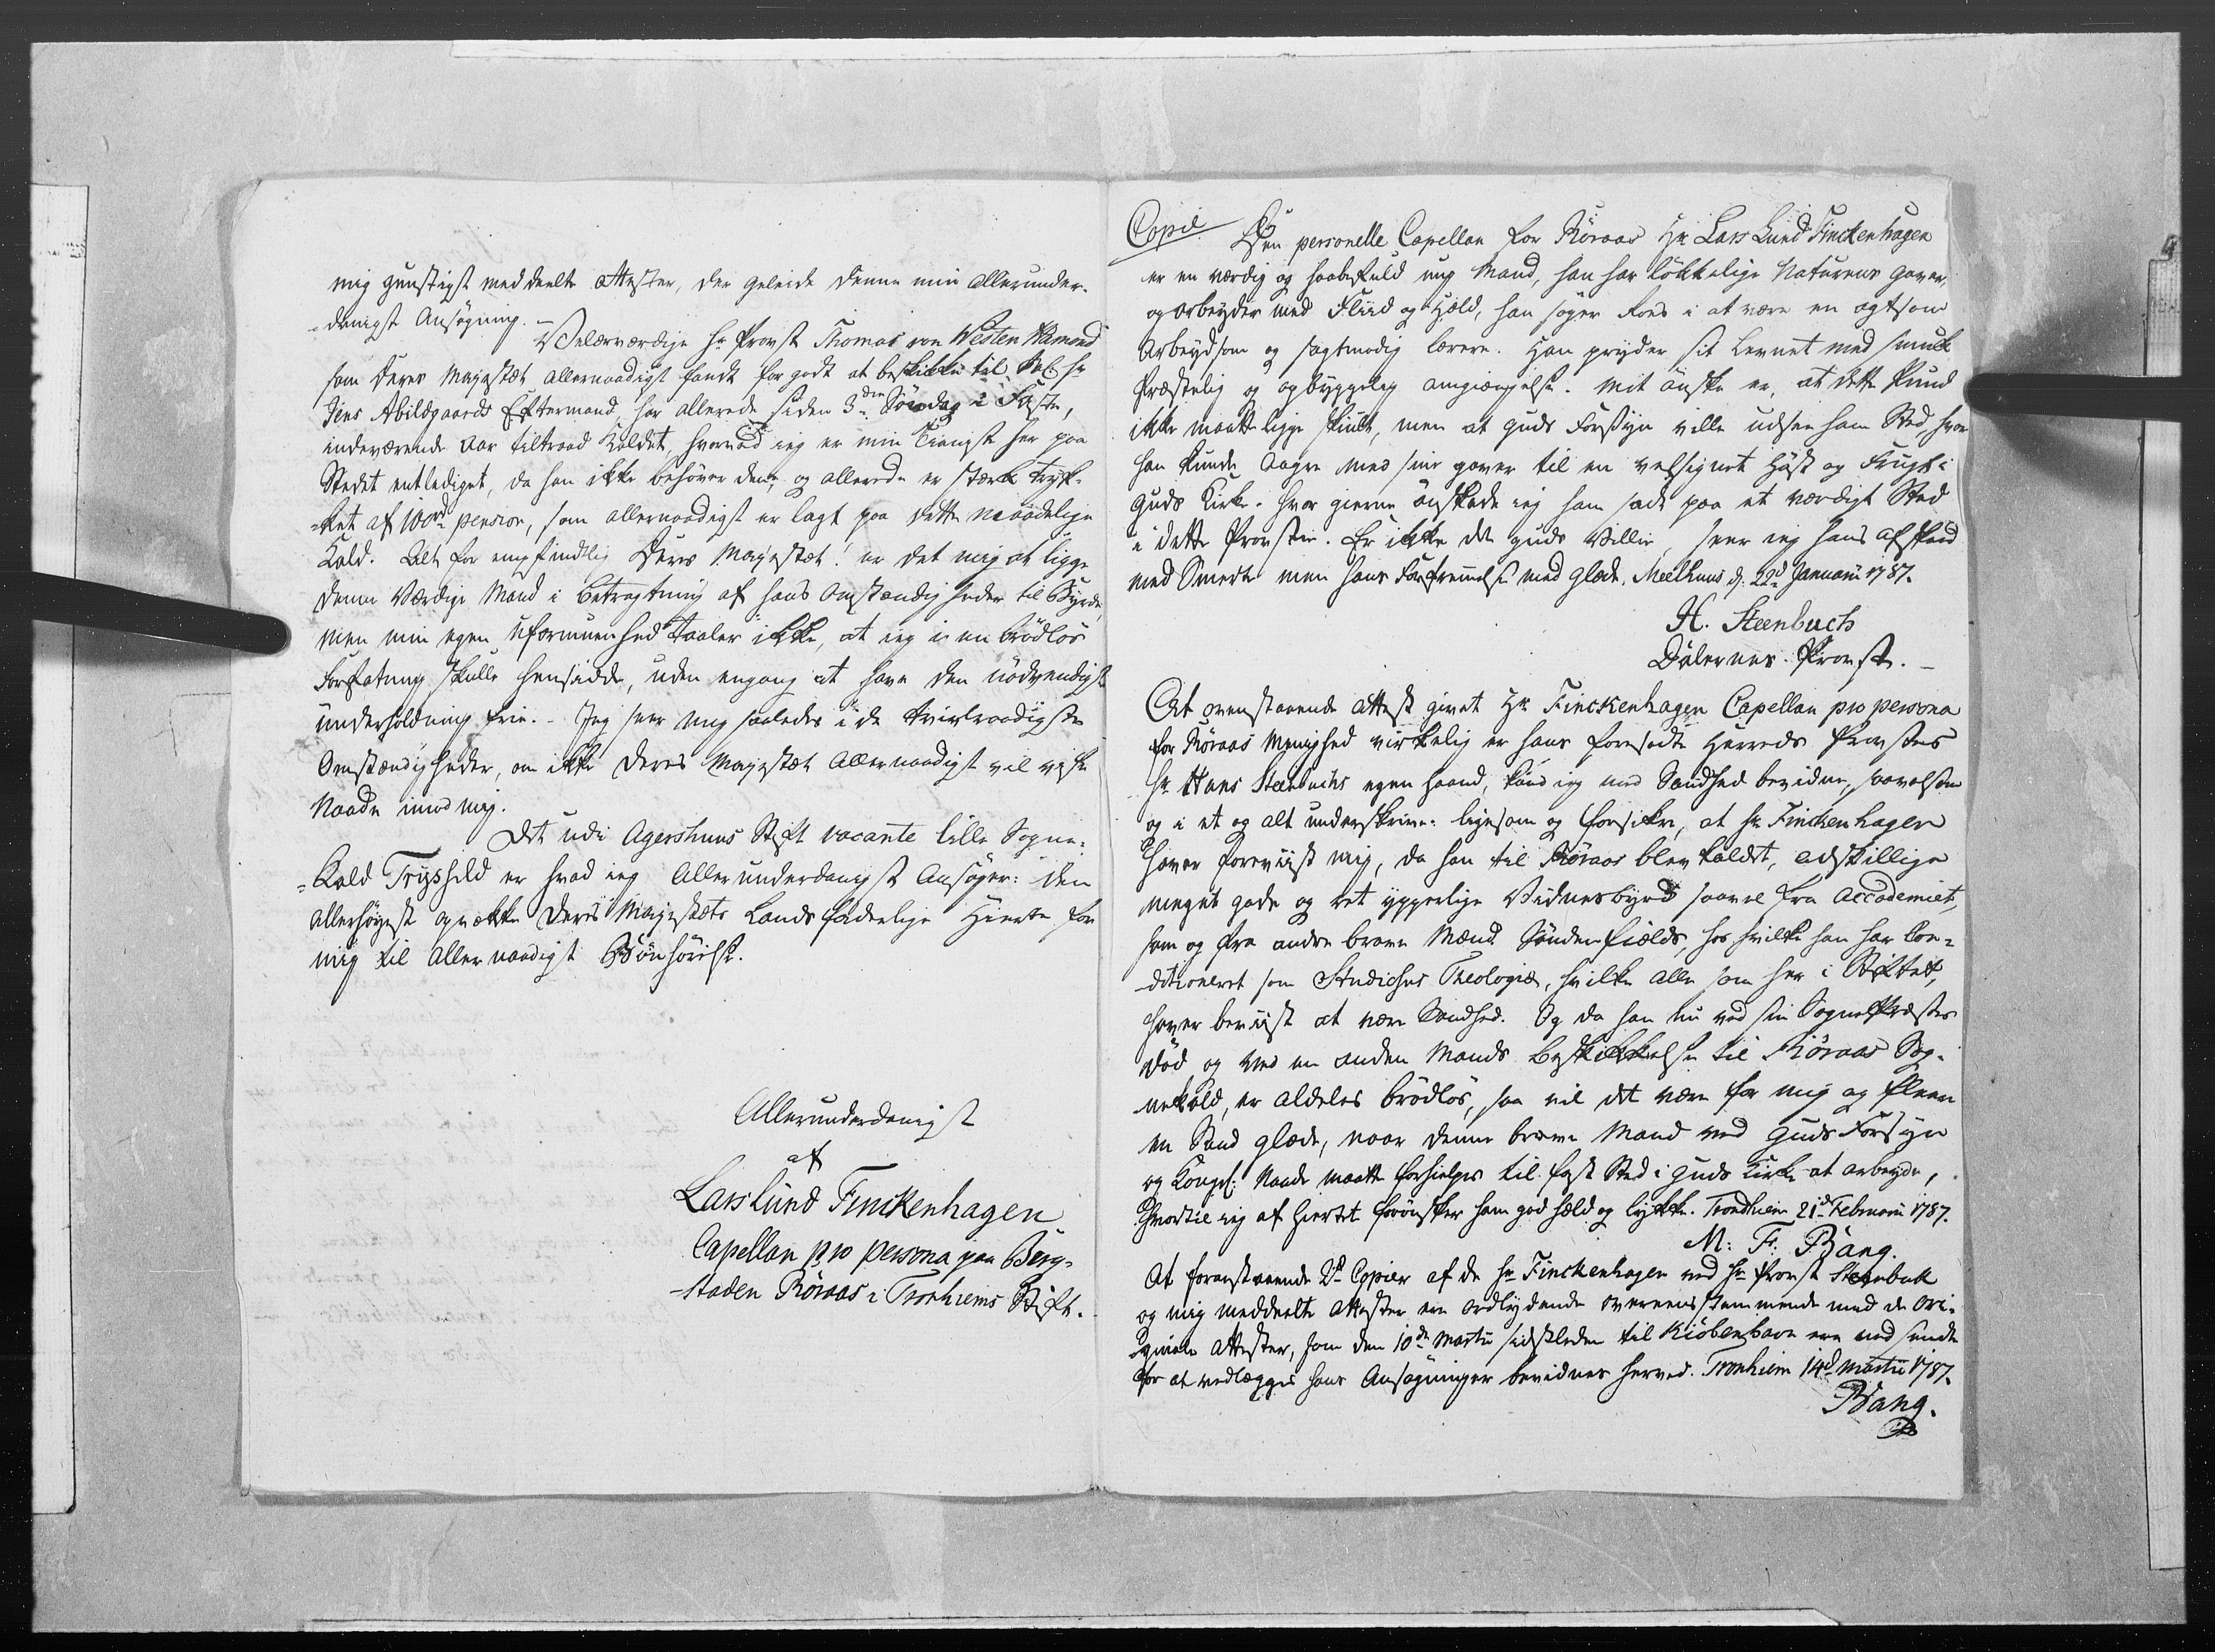 mig gunstigst meddeelte Attester, der geleide denne min allerunder-
-danigst Ansøgning. -
Velærværdige Hr Provst Thomas von Westen Hamond
som Deres Majestæt allernaadigst fandt for godt at beskikke til Hr
Jens Abildgaards Eftermand, har allerede siden 3die Søndag i Faste,
indeværende Aar tiltraad Kaldet, hvorved ieg er min Tieneste her paa
Stedet entlediget, da han ikke behøver den, og allerede er stærk tryk-
-ket af 100rd pension, som allernaadigst er lagt paa dette
Kald. Alt for empfindtlig Deres Majestæt! er det mig at ligge
denne Værdige Mand i betragtning af hans Omstændigheder til Byrde,
men min egen Uformuenhed taaler ikke, at ieg i en brødløs
Forfatning skulle hensidde, uden engang at have den nødvendigste
underholdning frie. - Jeg seer mig saaledes i de tvivlraadigste
Omstændigheder, om ikke Deres Majestæt Allernaadigst vil viise
Naade imod mig.
Det udi Agershuus Stift vacante lille Sogne-
-Kald Tryshild er hvad ieg Allerunderdanigst Ansøger: den
Allerhøyeste opvække Deres Majestæts Landsfaderlige Hierte for
mig til Allernaadigst Bønhørelse.
Allerunderdanigst
af
Lars Lund Finckenhagen
Capellan pro persona paa Berg-
-staden Røraas i Tronhiems Stift.
Copie
Den personelle Capellan for Røraas Hr. Lars Lund Finckenhagen
er en værdig og haabefuld ung Mand, han har lökkelige Naturens gaver,
og arbeyder med Fliid og Held, han søger Roes i at være en agtsom
Arbeydsom og sagtmodig lærere. Han pryder sit Levnet med smuk
Præstelig og opbyggelig omgiængelse. Mit ønske er, at dette Pund
ikke maatte ligge skiult, men at Guds Forsyn ville udsee ham Sted, hvor
han kunde Aagre med sine gaver til en velsignet Høst og Frugt i
Guds Kirke. Hvor gierne ønskede ieg ham sadt paa et værdigt Sted
i dette Provstie. Er ikke det Guds Villie, seer ieg hans afskeed
med Smerte men hans Forfremmelse med Glæde. Meelhuus d: 22d Januarii 1787.
H. Steenbuch
Dalernes Provst. -
At ovenstaaende Attest givet Hr. Finckenhagen Capellan pro persona
for Røraas Menighed virkelig er hans foresadte Herreds Provstes
Hr Hans Steenbuchs egen Haand, kand ieg med Sandhed bevidne, saavelsom
og i et og alt underskrive: ligesom og forsikre, at Hr Finckenhagen
haver foreviist mig, da han til Røraas blev kaldet, adskillige
meget gode og ret ypperlige Vidnesbyrd saavel fra Accademiet,
som og fra andre brave Mænd Søndenfields, hos hvilke han har con-
ditioneret som Studiosus Theologiæ, hvilke alle som her i Stiftet,
haver beviist at være Sandhed. Og da han nu ved sin SognePræstes
død og ved en anden Mands beskikkelse til Røraas Sog-
nekald, er aldeles brødløs, saa vil det være for mig og fleere
en Sand glæde, naar denne brave Mand ved Guds Forsyn
og Kongel: Naade maatte forhielpes til fast Sted i Guds Kirke at arbeyde,
hvortil ieg af Hiertet forønsker ham god held og lykke. Trondhiem 21d Februarii 1787.
M: F: Bang.
At foranstaaende 2de Copier af de Hr Finckenhagen ved Hr Provst Steenbuk
og mig meddeelte Attester ere ordlydende overeensstemmende med de Ori-
ginale Attester, som den 10de Martii sidstleden til Kiöbenhavn ere nedsendte
for at vedlægges hans Ansøgninger bevidnes herved. Tronhiem 14d Martii 1787.
Bang.